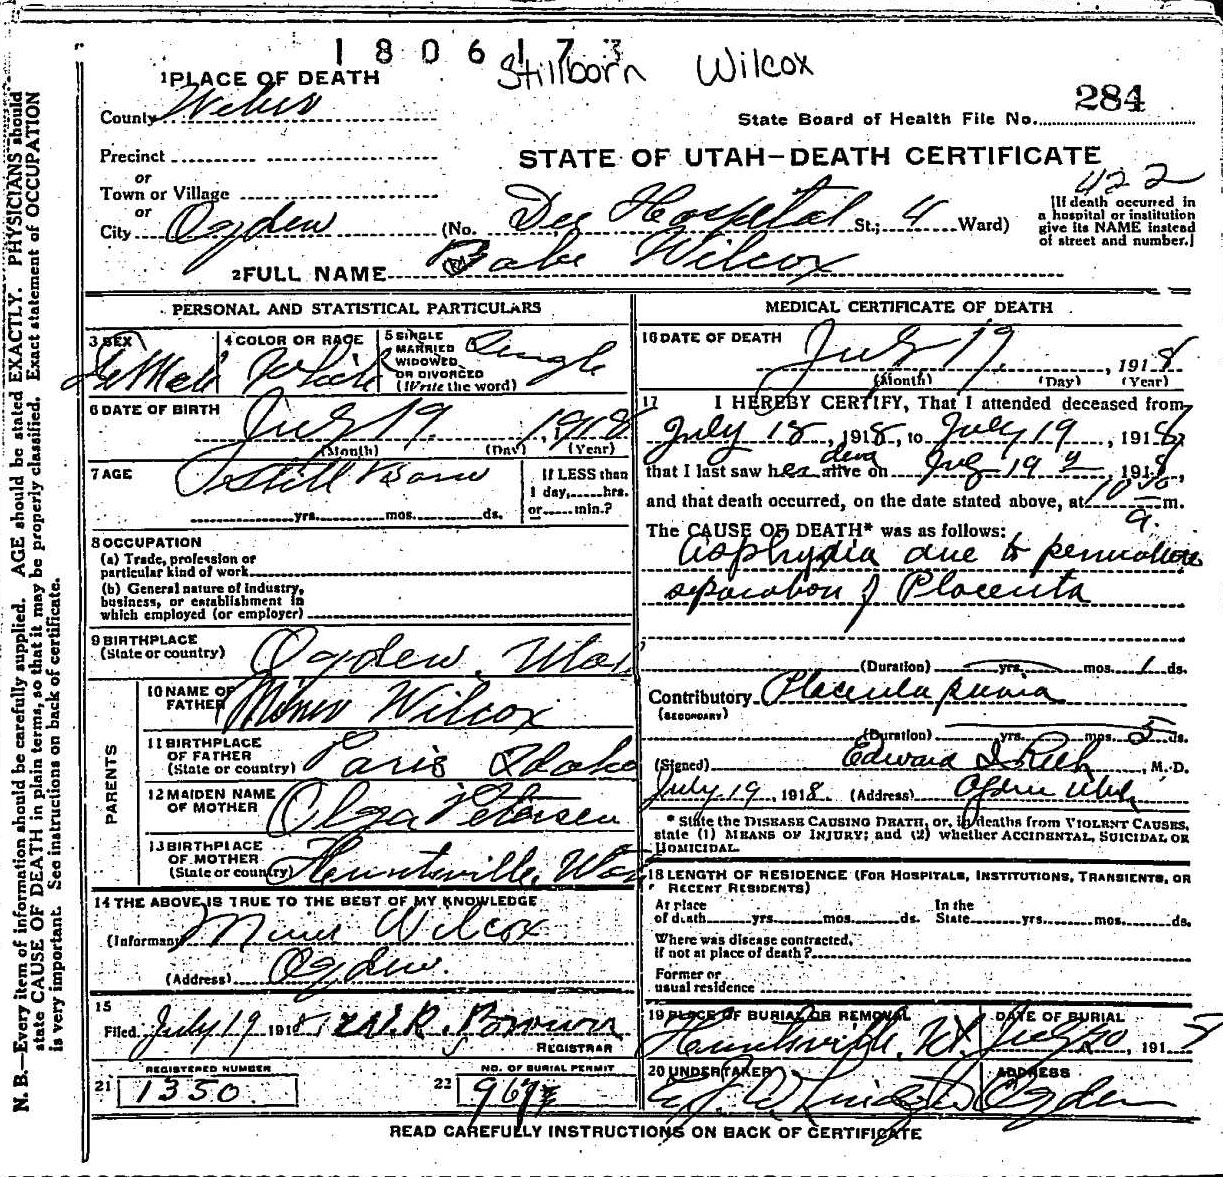 1806173
Stillborn Wilcox
284
1 PLACE OF DEATH
County Weber
State Board of Health File No.
Precinct
or
STATE OF UTAH—DEATH CERTIFICATE
422
Town or Village
or
City Ogden (No. Dee Hospital St.; 4 Ward)
[If death occurred in
a hospital or institution
give its NAME instead
of street and number.]
2 FULL NAME Babe Wilcox
PERSONAL AND STATISTICAL PARTICULARS
3 SEX
4 COLOR OR RACE White
5 SINGLE
MARRIED
WIDOWED
OR DIVORCED
(Write the word) Single
6 DATE OF BIRTH
July 19, 1918
(Month) (Day) (Year)
7 AGE Still Born
If LESS than
1 day,.....hrs.
or.....min.?
yrs. mos. ds.
8 OCCUPATION
(a) Trade, profession or
particular kind of work
(b) General nature of industry,
business, or establishment in
which employed (or employer)
9 BIRTHPLACE
(State or country) Ogden, Utah
PARENTS
10 NAME OF
FATHER Wilcox
11 BIRTHPLACE
OF FATHER
(State or country) Paris Idaho
12 MAIDEN NAME
OF MOTHER Olga Petersen
13 BIRTHPLACE
OF MOTHER
(State or country) Huntsville, Utah
14 THE ABOVE IS TRUE TO THE BEST OF MY KNOWLEDGE
(Informant) Wilcox
(Address) Ogden.
15
Filed July 19 1918 Brown
REGISTRAR
REGISTERED NUMBER
21 1350.
NO. OF BURIAL PERMIT
22
MEDICAL CERTIFICATE OF DEATH
16 DATE OF DEATH
July 19, 1918
(Month) (Day) (Year)
17 I HEREBY CERTIFY, That I attended deceased from
July 18, 1918, to July 19, 1918,
that I last saw her alive on July 19, 1918,
and that death occurred, on the date stated above, at 10 a. m.
The CAUSE OF DEATH* was as follows:
Asphyxia due to premature
separation of Placenta
(Duration) yrs. mos. 1 ds.
Contributory Placenta previa
(SECONDARY)
(Duration) yrs. mos. 5 ds.
(Signed) Edward I. Rich, M.D.
July 19, 1918. (Address) Ogden Utah
* State the DISEASE CAUSING DEATH, or, in deaths from VIOLENT CAUSES,
state (1) MEANS OF INJURY; and (2) whether ACCIDENTAL, SUICIDAL OR
HOMICIDAL.
18 LENGTH OF RESIDENCE (FOR HOSPITALS, INSTITUTIONS, TRANSIENTS, OR
RECENT RESIDENTS)
At place
of death yrs. mos. ds.
In the
State yrs. mos. ds.
Where was disease contracted,
if not at place of death?
Former or
usual residence
19 PLACE OF BURIAL OR REMOVAL
Huntsville, Ut.
DATE OF BURIAL
July 20, 191
20 UNDERTAKER
ADDRESS
Ogden
READ CAREFULLY INSTRUCTIONS ON BACK OF CERTIFICATE
N. B.—Every item of information should be carefully supplied. AGE should be stated EXACTLY. PHYSICIANS should
state CAUSE OF DEATH in plain terms, so that it may be properly classified. Exact statement of OCCUPATION
is very important. See instructions on back of certificate.